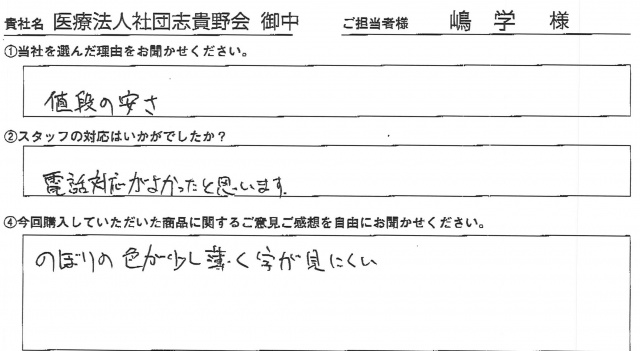 貴社名 医療法人社団志貴野会 御中 ご担当者様 嶋 学 様
①当社を選んだ理由をお聞かせください。
値段の安さ
②スタッフの対応はいかがでしたか？
電話対応がよかったと思います。
④今回購入していただいた商品に関するご意見ご感想を自由にお聞かせください。
のぼりの色が少し薄く字が見にくい